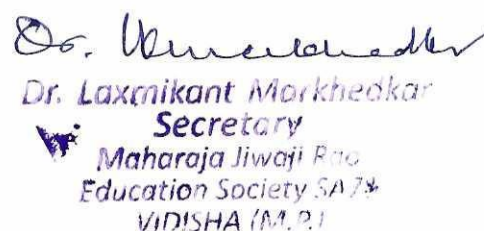 Dr.
Dr. Laxmikant Markhedkar
Secretary
Maharaja Jiwaji Rao
Education Society SATI
VIDISHA (M.P.)